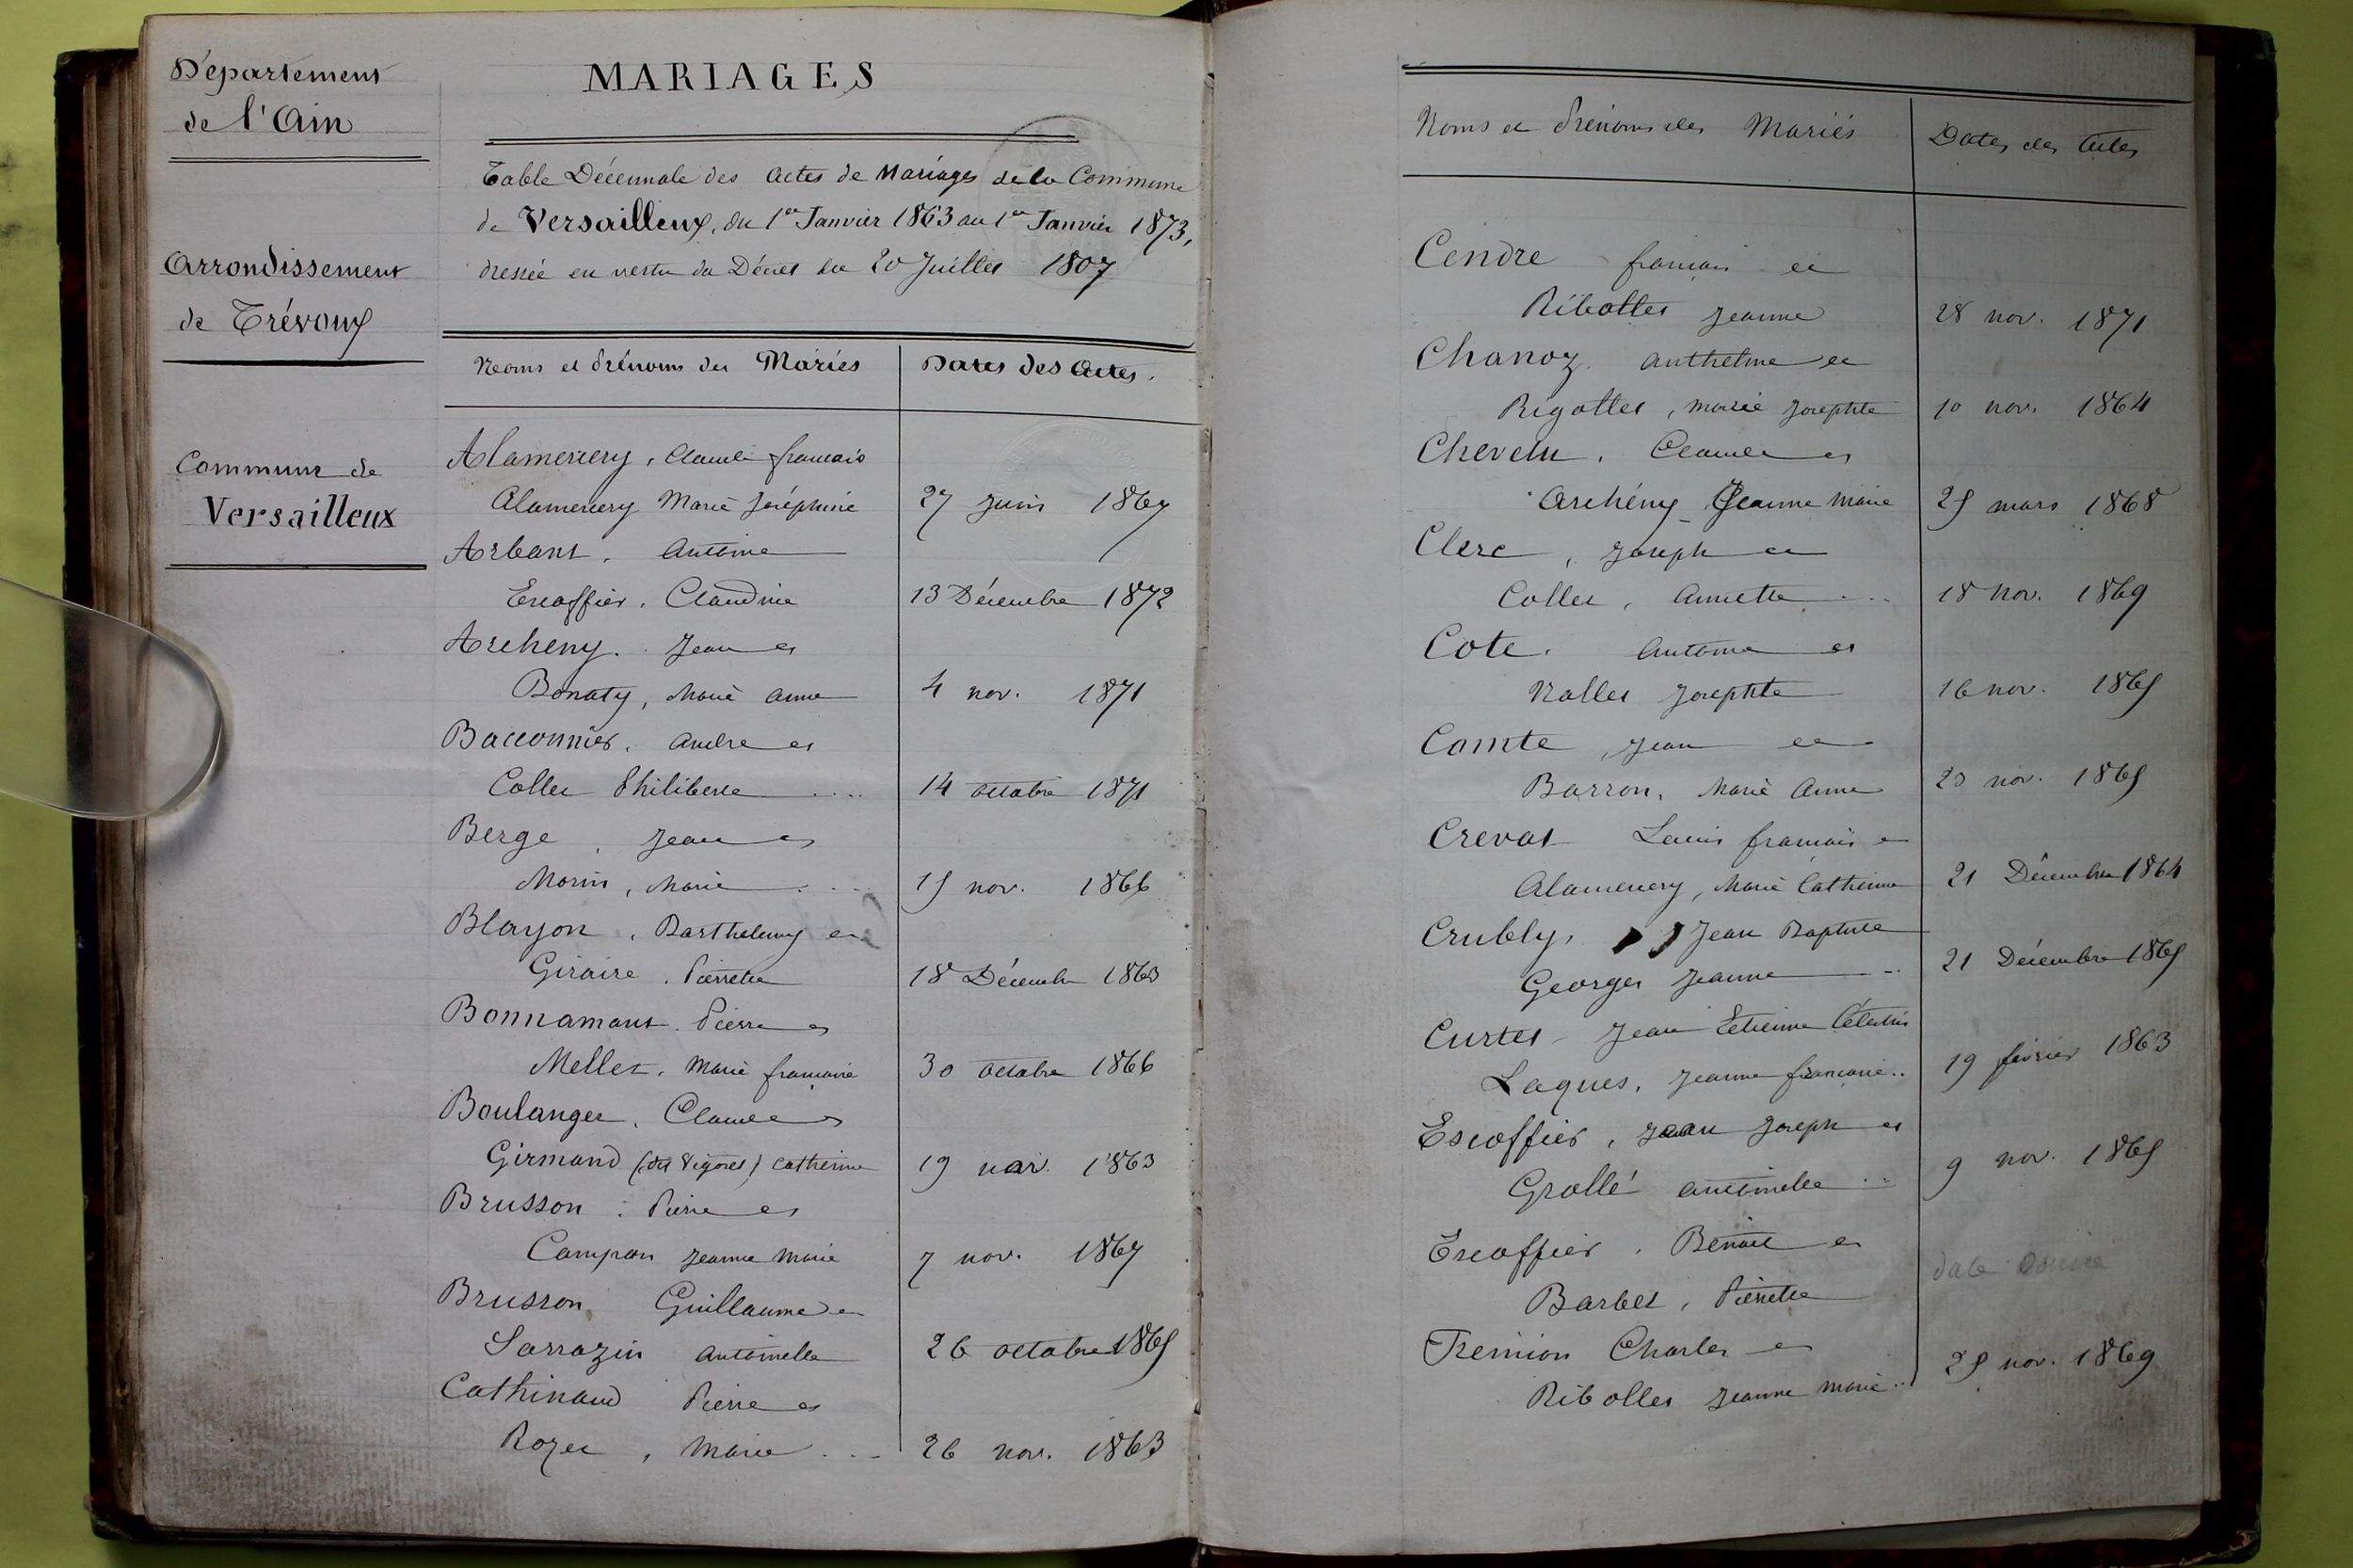 Département
de l'Ain
Arrondissement
de Trévoux
Commune de
Versailleux
MARIAGES
Table Décennale des actes de Mariages de la Commune
de Versailleux, du 1er Janvier 1863 au 1er Janvier 1873,
dressée en vertu du Décret du 20 Juillet 1807
Noms et Prénoms des Mariés Dates des Actes.
Alamercery, Claude françois
Alamercery Marie Joséphine 27 Juin 1867
Arbant, Antoine
Escoffier, Claudine 13 Décembre 1872
Archeny. Jean et
Bonaty, Marie Anne 4 nov. 1871
Bacconnier, André et
Collet Philiberte 14 octobre 1871
Berge, Jean et
Morin, Marie 15 nov. 1866
Blayon, Barthelemy et
Giraire, Pierrette 18 Décembre 1863
Bonnamant, Pierre et
Mellet, Marie françoise 30 octobre 1866
Boulanger, Claude et
Girmand (dit Vigoret) Catherine 19 nov. 1863
Brusson, Pierre et
Campan Jeanne Marie 7 nov. 1867
Brusson, Guillaume et
Sarrazin Antoinette 26 octobre 1865
Cathinaud Pierre et
Rozet, Marie 26 nov. 1863
Noms et Prénoms des Mariés Dates des Actes
Cendre françois et
Ribottet Jeanne 28 nov. 1871
Chanoz, Anthelme et
Rigottet, Marie Josephte 10 nov. 1864
Chevelu, Claude et
Archény Jeanne Marie 25 mars 1868
Clerc, Joseph et
Collet, Annette 18 nov. 1869
Cote. Antoine et
Nallet Josephte 16 nov. 1865
Comte, Jean et
Barron, Marie Anne 23 nov. 1865
Crevat Louis françois et
Alamercery, Marie Catherine 21 Décembre 1864
Crubly, Jean Baptiste
Georges Jeanne 21 Décembre 1865
Curtet Jean Etienne Célestin
Laques, Jeanne françoise 19 février 1863
Escoffier, Jean Joseph et
Grollé Antoinette 9 nov. 1865
Escoffier, Benoit et
Barbet, Pierrette date omise
Fremion Charles et
Ribollet Jeanne Marie 25 nov. 1869